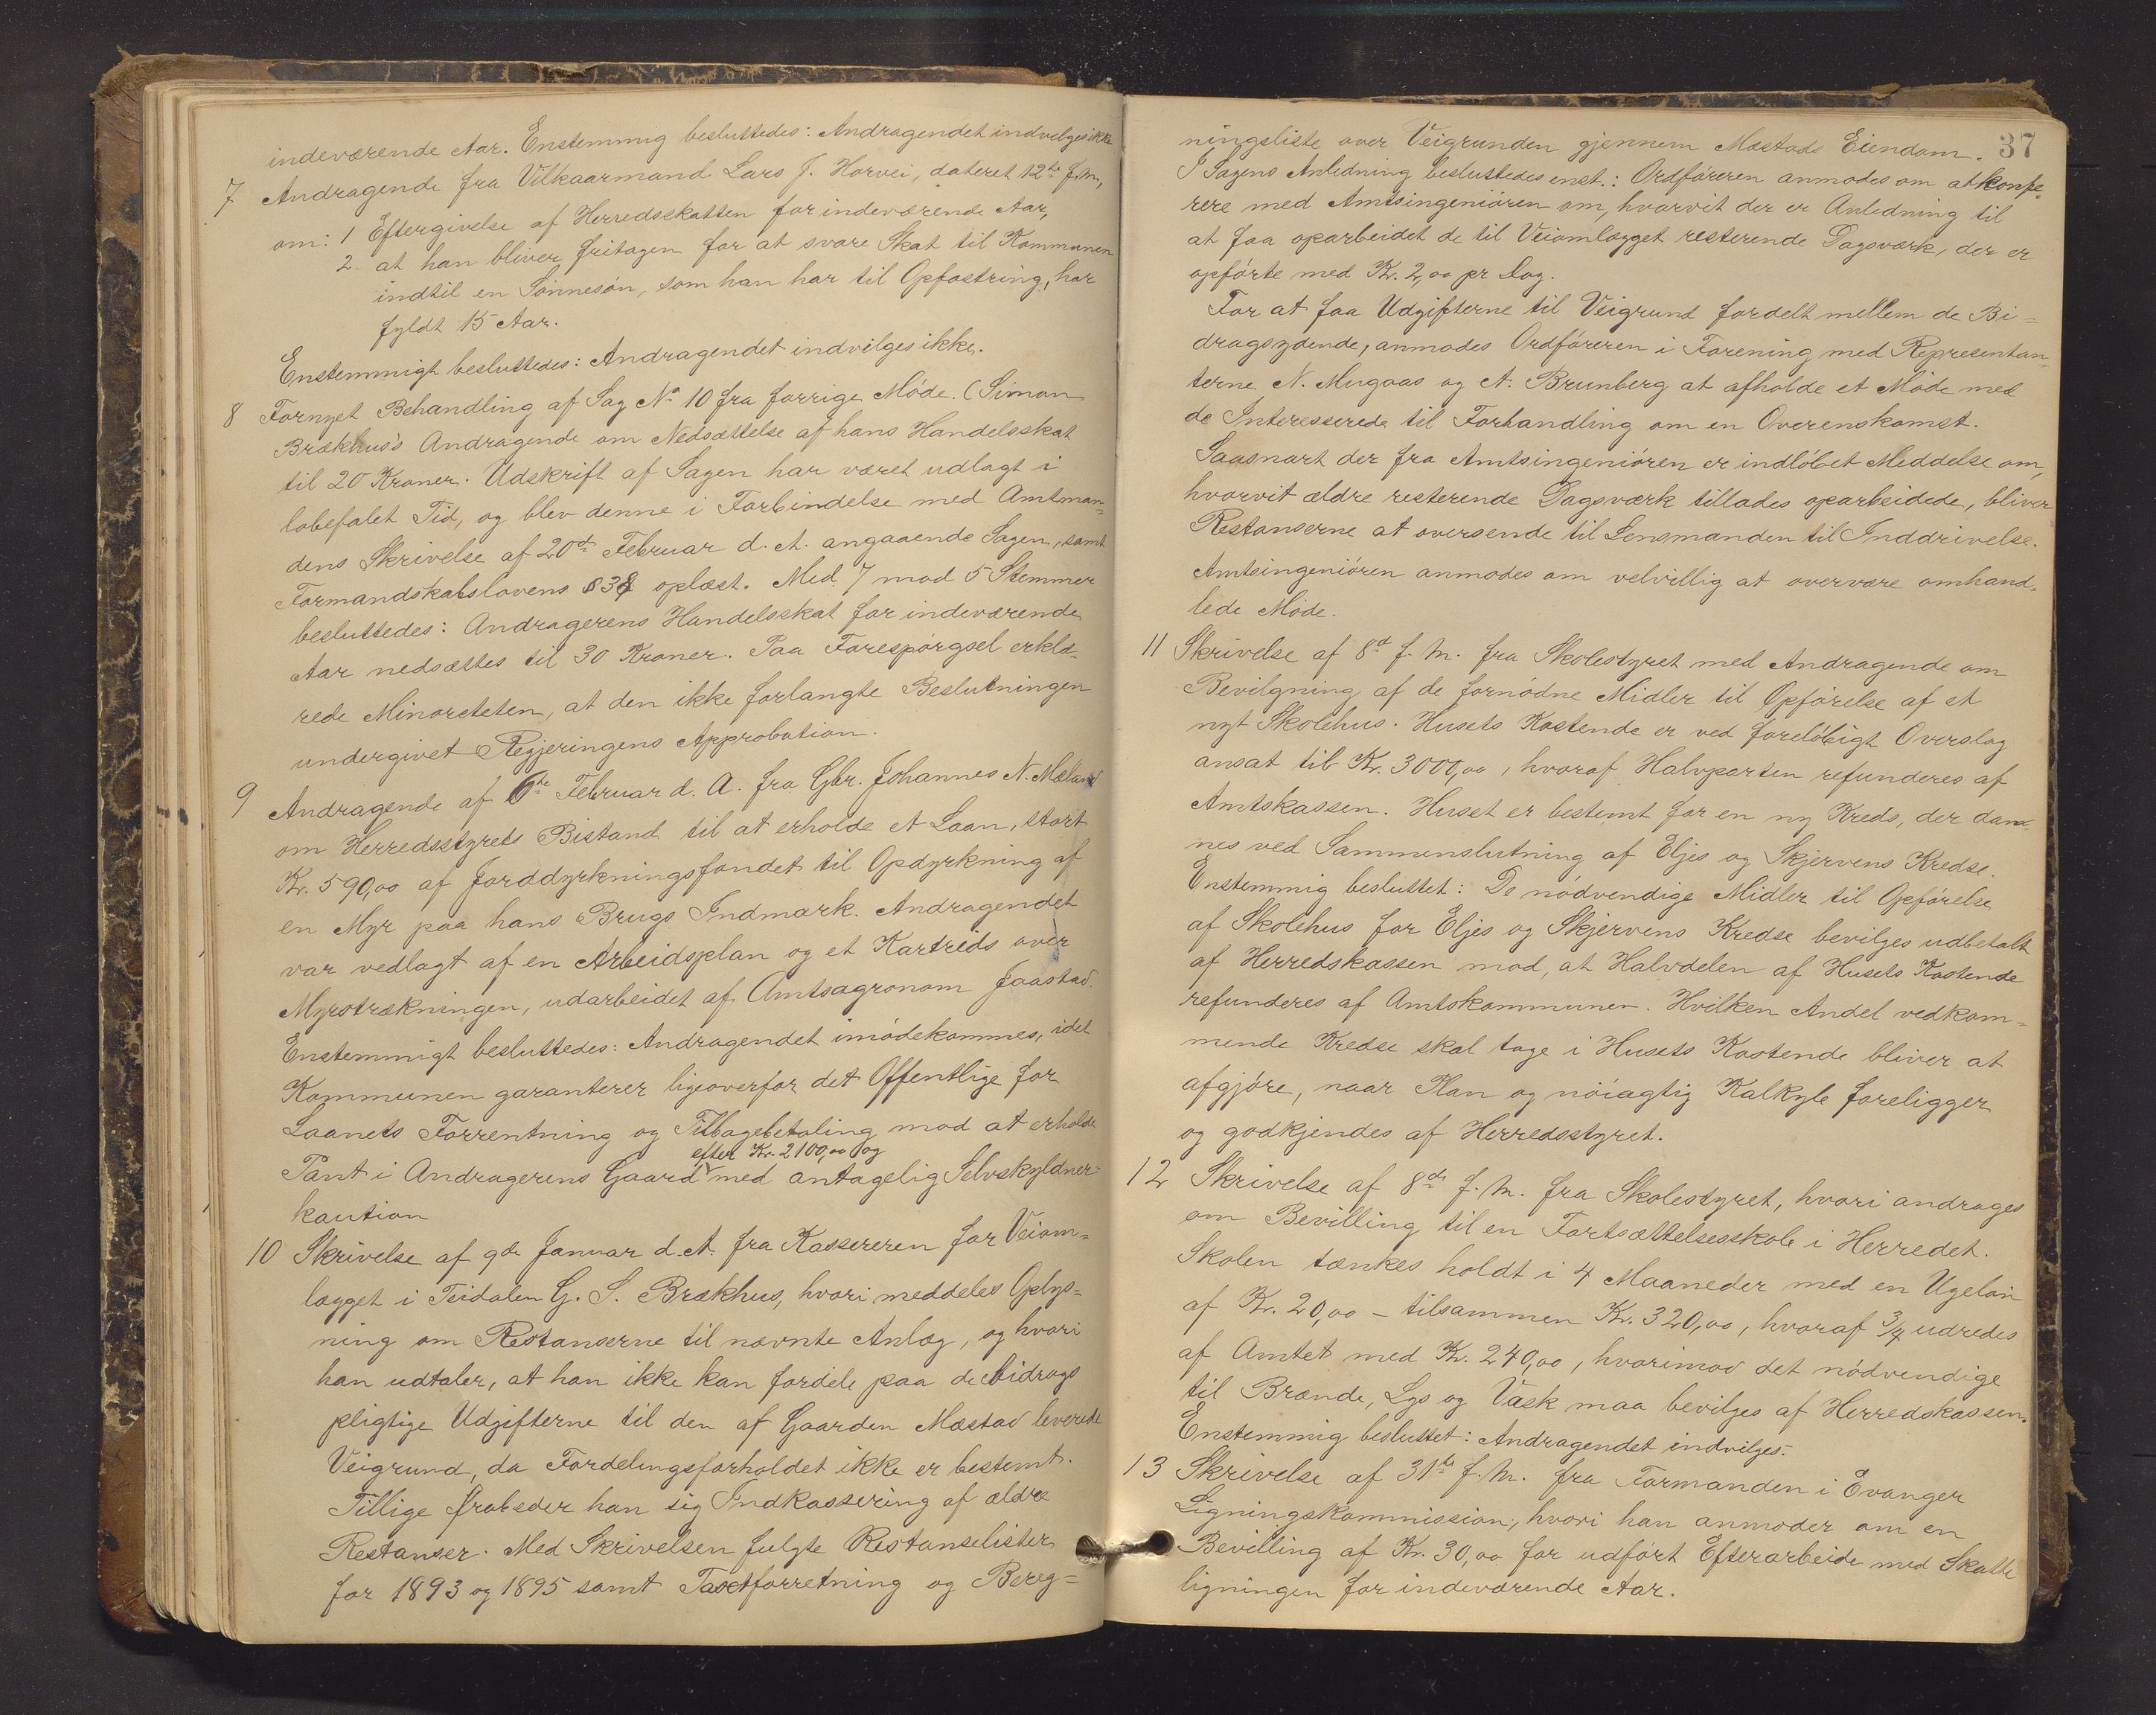 indeværende Aar. Enstemmig besluttedes: Andragendet indvilges ikke
7 Andragende fra Vilkaarmand Lars J. Horvei, dateret 12te f.m.,
om: 1 Eftergivelse af Herredsskatten for indeværende Aar,
2. at han bliver fritagen for at svare Skat til Kommunen
indtil en Sønnesøn, som han har til Opfostring, har
fyldt 15 Aar.
Enstemmigt besluttedes: Andragendet indvilges ikke.
8 Fornyet Behandling af Sag No 10 fra forrige Møde. (Simon
Brækhus's Andragende om Nedsættelse af hans Handelsskat
til 20 Kroner. Udskrift af Sagen har været udlagt i
lobefalet Tid, og blev denne i Forbindelse med Amtman=
dens Skrivelse af 20de Februar d. A. angaaende Sagen, samt
Formandskabslovens § 38 oplæst. Med 7 mod 5 Stemmer
besluttedes: Andragerens Handelsskat for indeværende
Aar nedsættes til 30 Kroner. Paa Forespørgsel erklæ-
rede Minoreteten, at den ikke forlangte Beslutningen
undergivet Regjeringens Approbation.
9 Andragende af 6te Februar d. A. fra Gbr. Johannes N. Mæland
om Herredsstyrets Bistand til at erholde et Laan, stort
Kr. 590,00 af Jorddyrkningsfondet til Opdyrkning af
en Myr paa hans Brugs Indmark. Andragendet
var vedlagt af en Arbeidsplan og et Kartrids over
Myrstrækningen, udarbeidet af Amtsagronom Jaastad.
Enstemmigt besluttedes: Andragendet imødekommes, idet
Kommunen garanterer ligeoverfor det Offentlige for
Laanets Forrentning og Tilbagebetaling mod at erholde
efter Kr. 2100,00 og
Pant i Andragerens Gaard med antagelig Selvskyldner=
kaution
10 Skrivelse af 9de Januar d. A. fra Kassereren for Veiom=
lægget i Teidalen G. S. Brækhus, hvori meddeles Oplys=
ning om Restanserne til nævnte Anlæg, og hvori
han udtaler, at han ikke kan fordele paa de bidrags
pligtige Udgifterne til den af Gaarden Mæstad leverede
Veigrund, da Fordelingsforholdet ikke er bestemt.
Tillige frabeder han sig Indkassering af ældre
Restanser. Med Skrivelsen fulgte Restanselister
for 1893 og 1895 samt Taxtforretning og Bereg=
37
ningsliste over Veigrunden gjennem Mæstads Eiendom.
I Sagens Anledning besluttedes enst.: Ordføreren anmodes om at konfe=
rere med Amtsingeniøren om, hvorvit der er Anledning til
at faa oparbeidet de til Veiomlægget resterende Dagsværk, der er
opførte med Kr. 2,00 pr Dag.
For at faa Udgifterne til Veigrund fordelt mellem de Bi=
dragsydende, anmodes Ordføreren i Forening med Representan=
terne N. Mugaas og A. Brunberg at afholde et Møde med
de Interesserede til Forhandling om en Overenskomst.
Saasnart der fra Amtsingeniøren er indløbet Meddelse om,
hvorvit ældre resterende Dagsværk tillades oparbeidede, bliver
Restanserne at oversende til Lensmanden til Inddrivelse.
Amtsingeniøren anmodes om velvillig at overvære omhand=
lede Møde.
11 Skrivelse af 8de f. M. fra Skolestyret med Andragende om
Bevilgning af de fornødne Midler til Opførelse af et
nyt Skolehus. Husets Kostende er ved foreløbigt Overslag
ansat til Kr. 3000,00, hvoraf Halvparten refunderes af
Amtskassen. Huset er bestemt for en ny Kreds, der dan=
nes ved Sammenslutning af Eljes og Skjervens Kredse.
Enstemmig besluttet: De nødvendige Midler til Opførelse
af Skolehus for Eljes og Skjervens Kredse bevilges udbetalt
af Herredskassen mod, at Halvdelen af Husets Kostende
refunderes af Amtskommunen. Hvilken Andel vedkom=
mende Kredse skal tage i Husets Kostende bliver at
afgjøre, naar Plan og nøiagtig Kalkyle foreligger
og godkjendes af Herredsstyret.
12 Skrivelse af 8de f. M. fra Skolestyret, hvori andrages
om Bevilling til en Fortsættelsesskole i Herredet.
Skolen tænkes holdt i 4 Maaneder med en Ugeløn
af Kr. 20,00 – tilsammen Kr. 320,00, hvoraf 3/4 udredes
af Amtet med Kr. 240,00, hvorimod det nødvendige
til Brænde, Lys og Vask maa bevilges af Herredskassen.
Enstemmig besluttet: Andragendet indvilges.
13 Skrivelse af 31te f. M. fra Formanden i Evanger
Ligningskommission, hvori han anmoder om en
Bevilling af Kr. 30,00 for udført Efterarbeide med Skatte
ligningen for indeværende Aar.